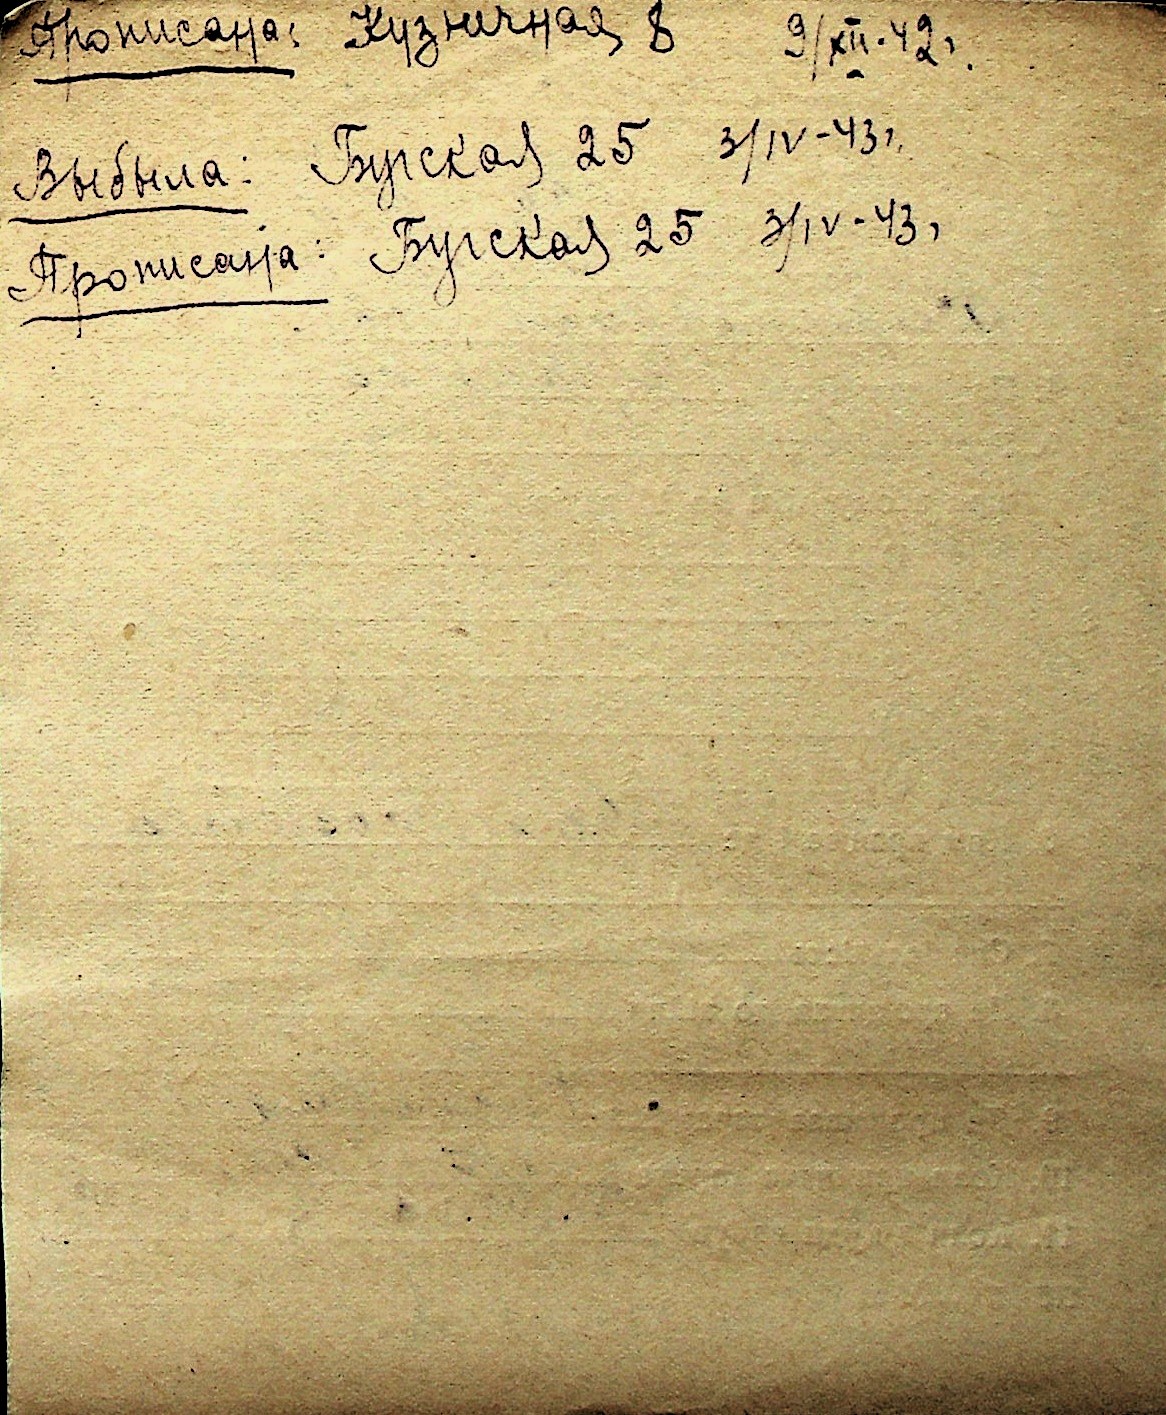 Прописана: Кузничная 8 9/XII-42г.
Выбыла: Бугская 25 3/IV-43г.
Прописана: Бугская 25 3/IV-43г